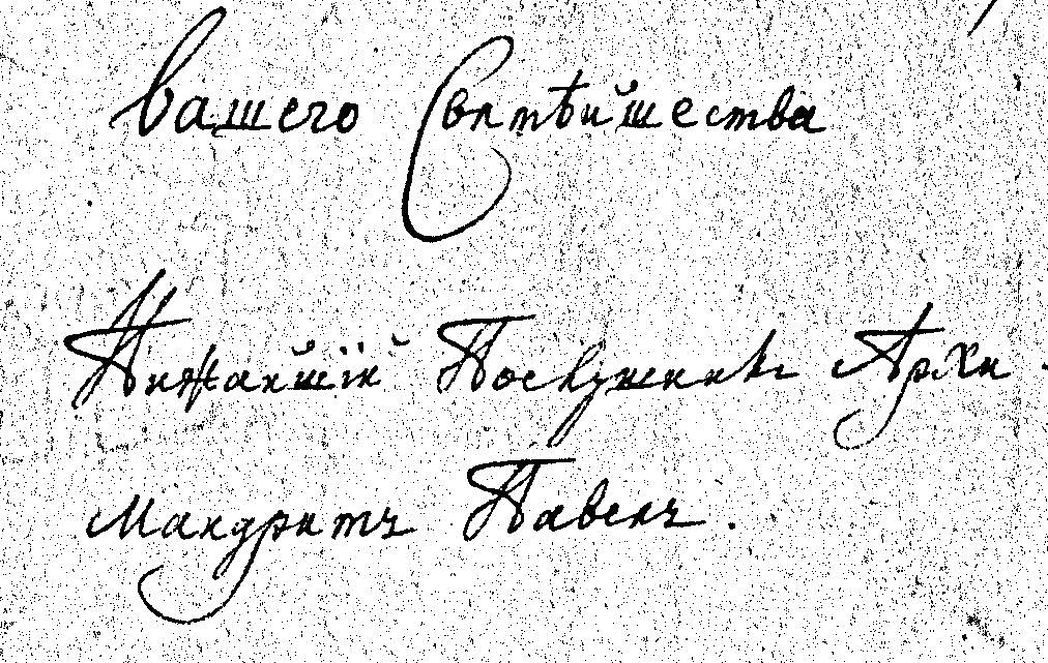 вашего Святѣйшества
Нижайшій Послушникъ Архи
Мандритъ Павелъ.